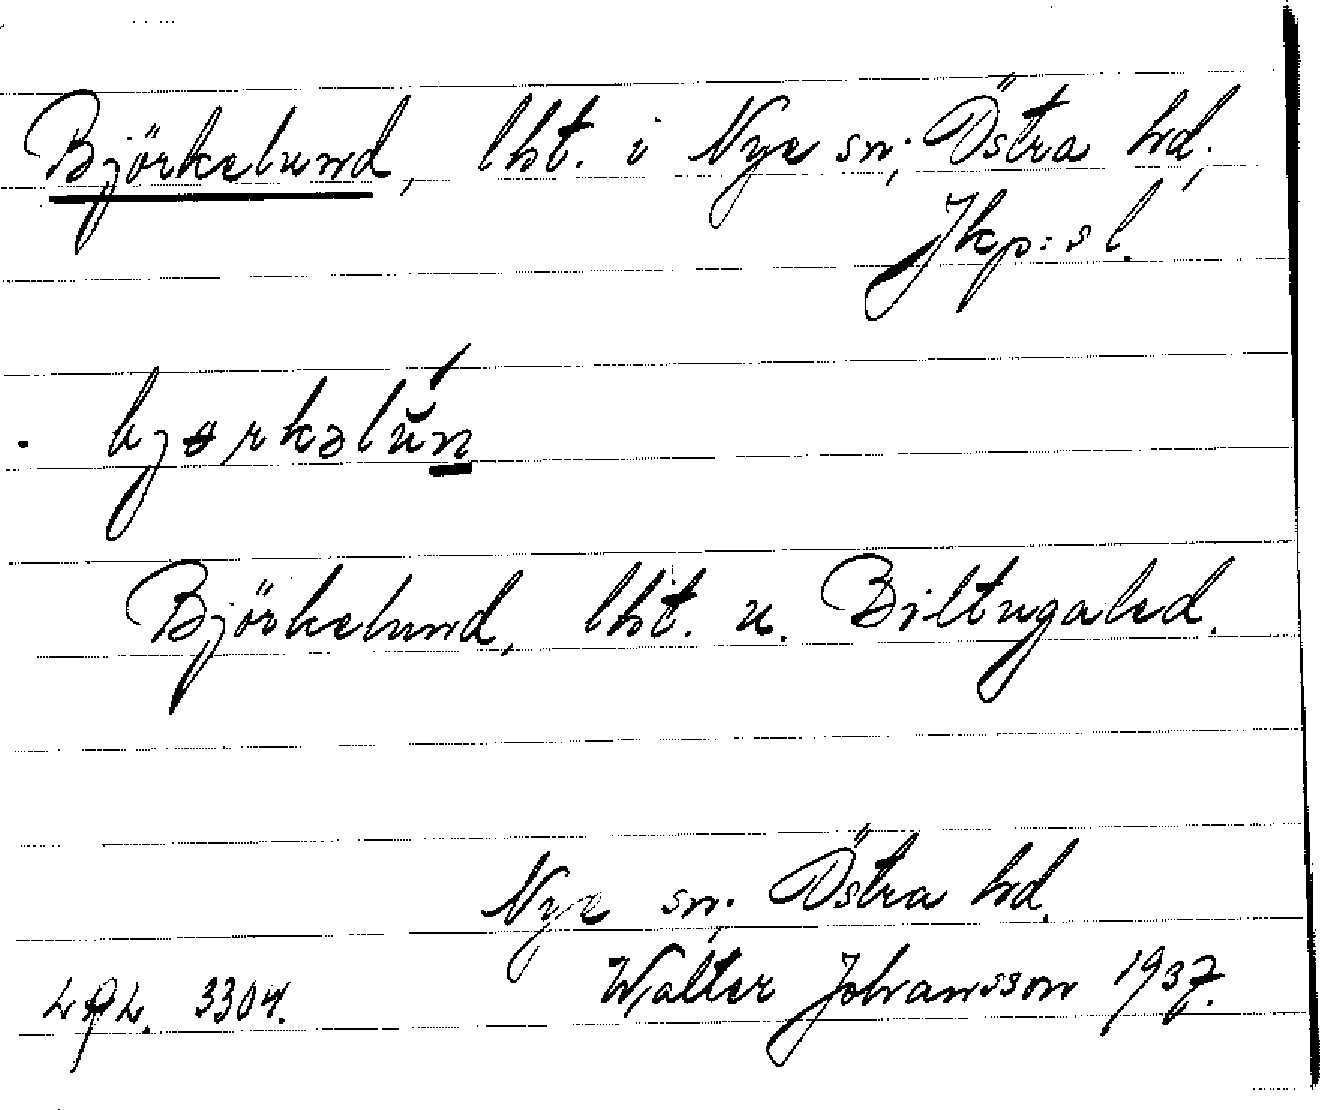 Björkelund, lht. i Nye sn; Östra hd.,
Jkp:s l.
bjørkəlŭn
Björkelund, lht. u. Biltugaled.
Nye sn; Östra hd.
3304. Walter Johansson 1937.